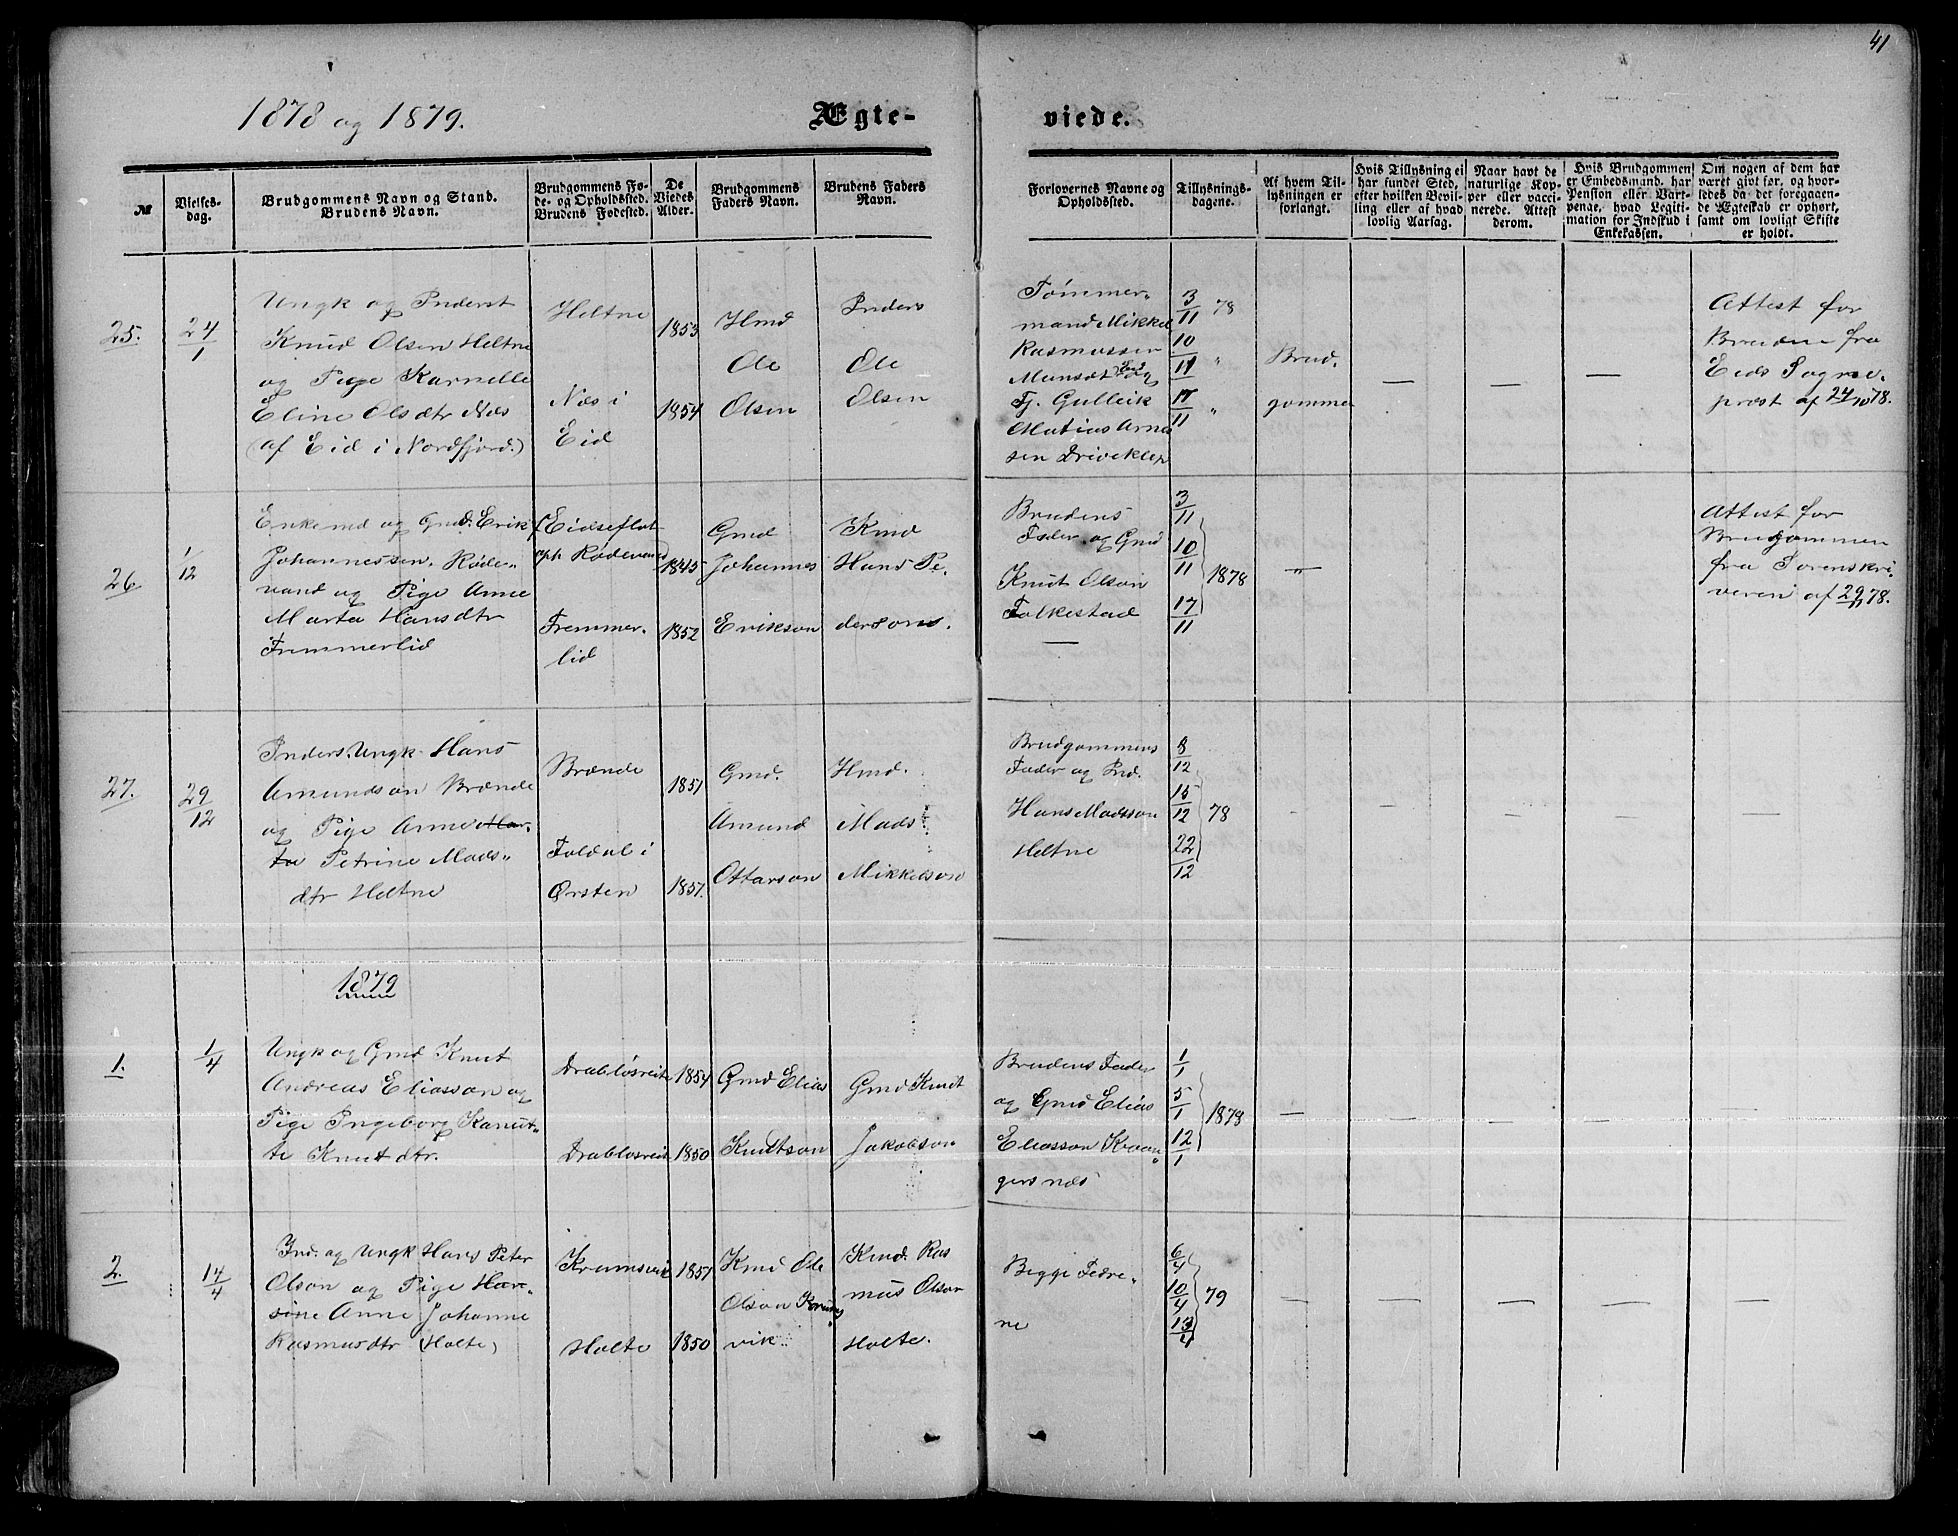 41
1878 og 1879.
Ægte-
viede.
№
Vielses-
dag.
Brudgommens Navn og Stand.
Brudens Navn.
Brudgommens Fø-
de- og Opholdssted.
Brudens Fødested.
De
Viedes
Alder.
Brudgommens
Faders Navn.
Brudens Faders
Navn.
Forlovernes Navne og
Opholdssted.
Tillysnings-
dagene.
Af hvem Til-
lysningen er
forlangt.
Hvis Tillysning ei
har fundet Sted,
efter hvilken Bevil-
ling eller af hvad
lovlig Aarsag.
Naar havt de
naturlige Kop-
per eller vacci-
nerede. Attest
derom.
Hvis Brudgommen
er Embedsmand, har
Pension eller Vart-
penge, hvad Legiti-
mation for Indskud i
Enkekassen.
Om nogen af dem har
været givt før, og hvor-
ledes da det foregaaen-
de Ægteskab er ophørt,
samt om lovligt Skifte
er holdt.
25.
24/1
Ungk og Inderst
Knud Olsen Heltne
og Pige Karnelle
Eline Olsdtr Næs
(af Eid i Nordfjord.)
Heltne
Næs i
Eid
1853
1854
Hmd
Ole
Olsen
Inders
Ole
Olsen
Tømmer-
mand Mikkel
Rasmussen
og
Tj. Gulleik
Matias Arne
sen Driveklep
3/11 78
10/11 "
17/11 "
Brud.
gommen
—
—
—
Attest for
Bruden fra
Eids Sogne.
præst af 24/10 78.
26.
1/12
Enkemd og Gmd. Erik
Johannessen. Røde-
vand og Pige Anne
Marta Hansdtr
Fremmerlid
(Eidseflot
oph Rødevand)
Fremmer.
lid
1845
1852
Gmd
Johannes
Erikson
Kmd
Hans Pe.
dersons.
Brudens
Fader og Gmd
Knut Olson
Folkestad
—
3/11
10/11
17/11
1878
—"—
Attest for
Brudgommen
fra Sorenskri.
veren af 29/11 78.
27.
29/12
Inders. Ungk. Hans
Amundson Brænde
og Pige Anne Mar-
ta Petrine Mads-
dtr Heltne
Brænde
Foldal i
Ørsten
1851
1857.
Gmd.
Amund
Ottarson
Hmd.
Mads
Mikkelson
Brudgommens
Fader og Ind.
Hans Madsson
Heltne
8/12
15/12
22/12
78
1879
1.
1/4
Ungk og Gmd Knut
Andreas Eliasson og
Pige Ingeborg Kanut-
te Knutdtr.
Drabløsreite
Drabløsreit
1854
1850
Gmd Elias
Knutson
Gmd Knut
Jakobson
Brudens Fader
og Gmd Elias
Eliasson Kraan-
gersnæs
1/1
5/1
12/1
1878
—
2.
14/4
Ind. og Ungk Hans Peter
Olson og Pige Han-
sine Anne Johanne
Rasmusdtr (Holte)
Krumsvik
Holte
1851
1850
Kmd Ole
Olson Krums
vik.
Kmd. Ras
mus Olson
Holte.
Begge Fædre-
ne
6/4
10/4
13/4
79